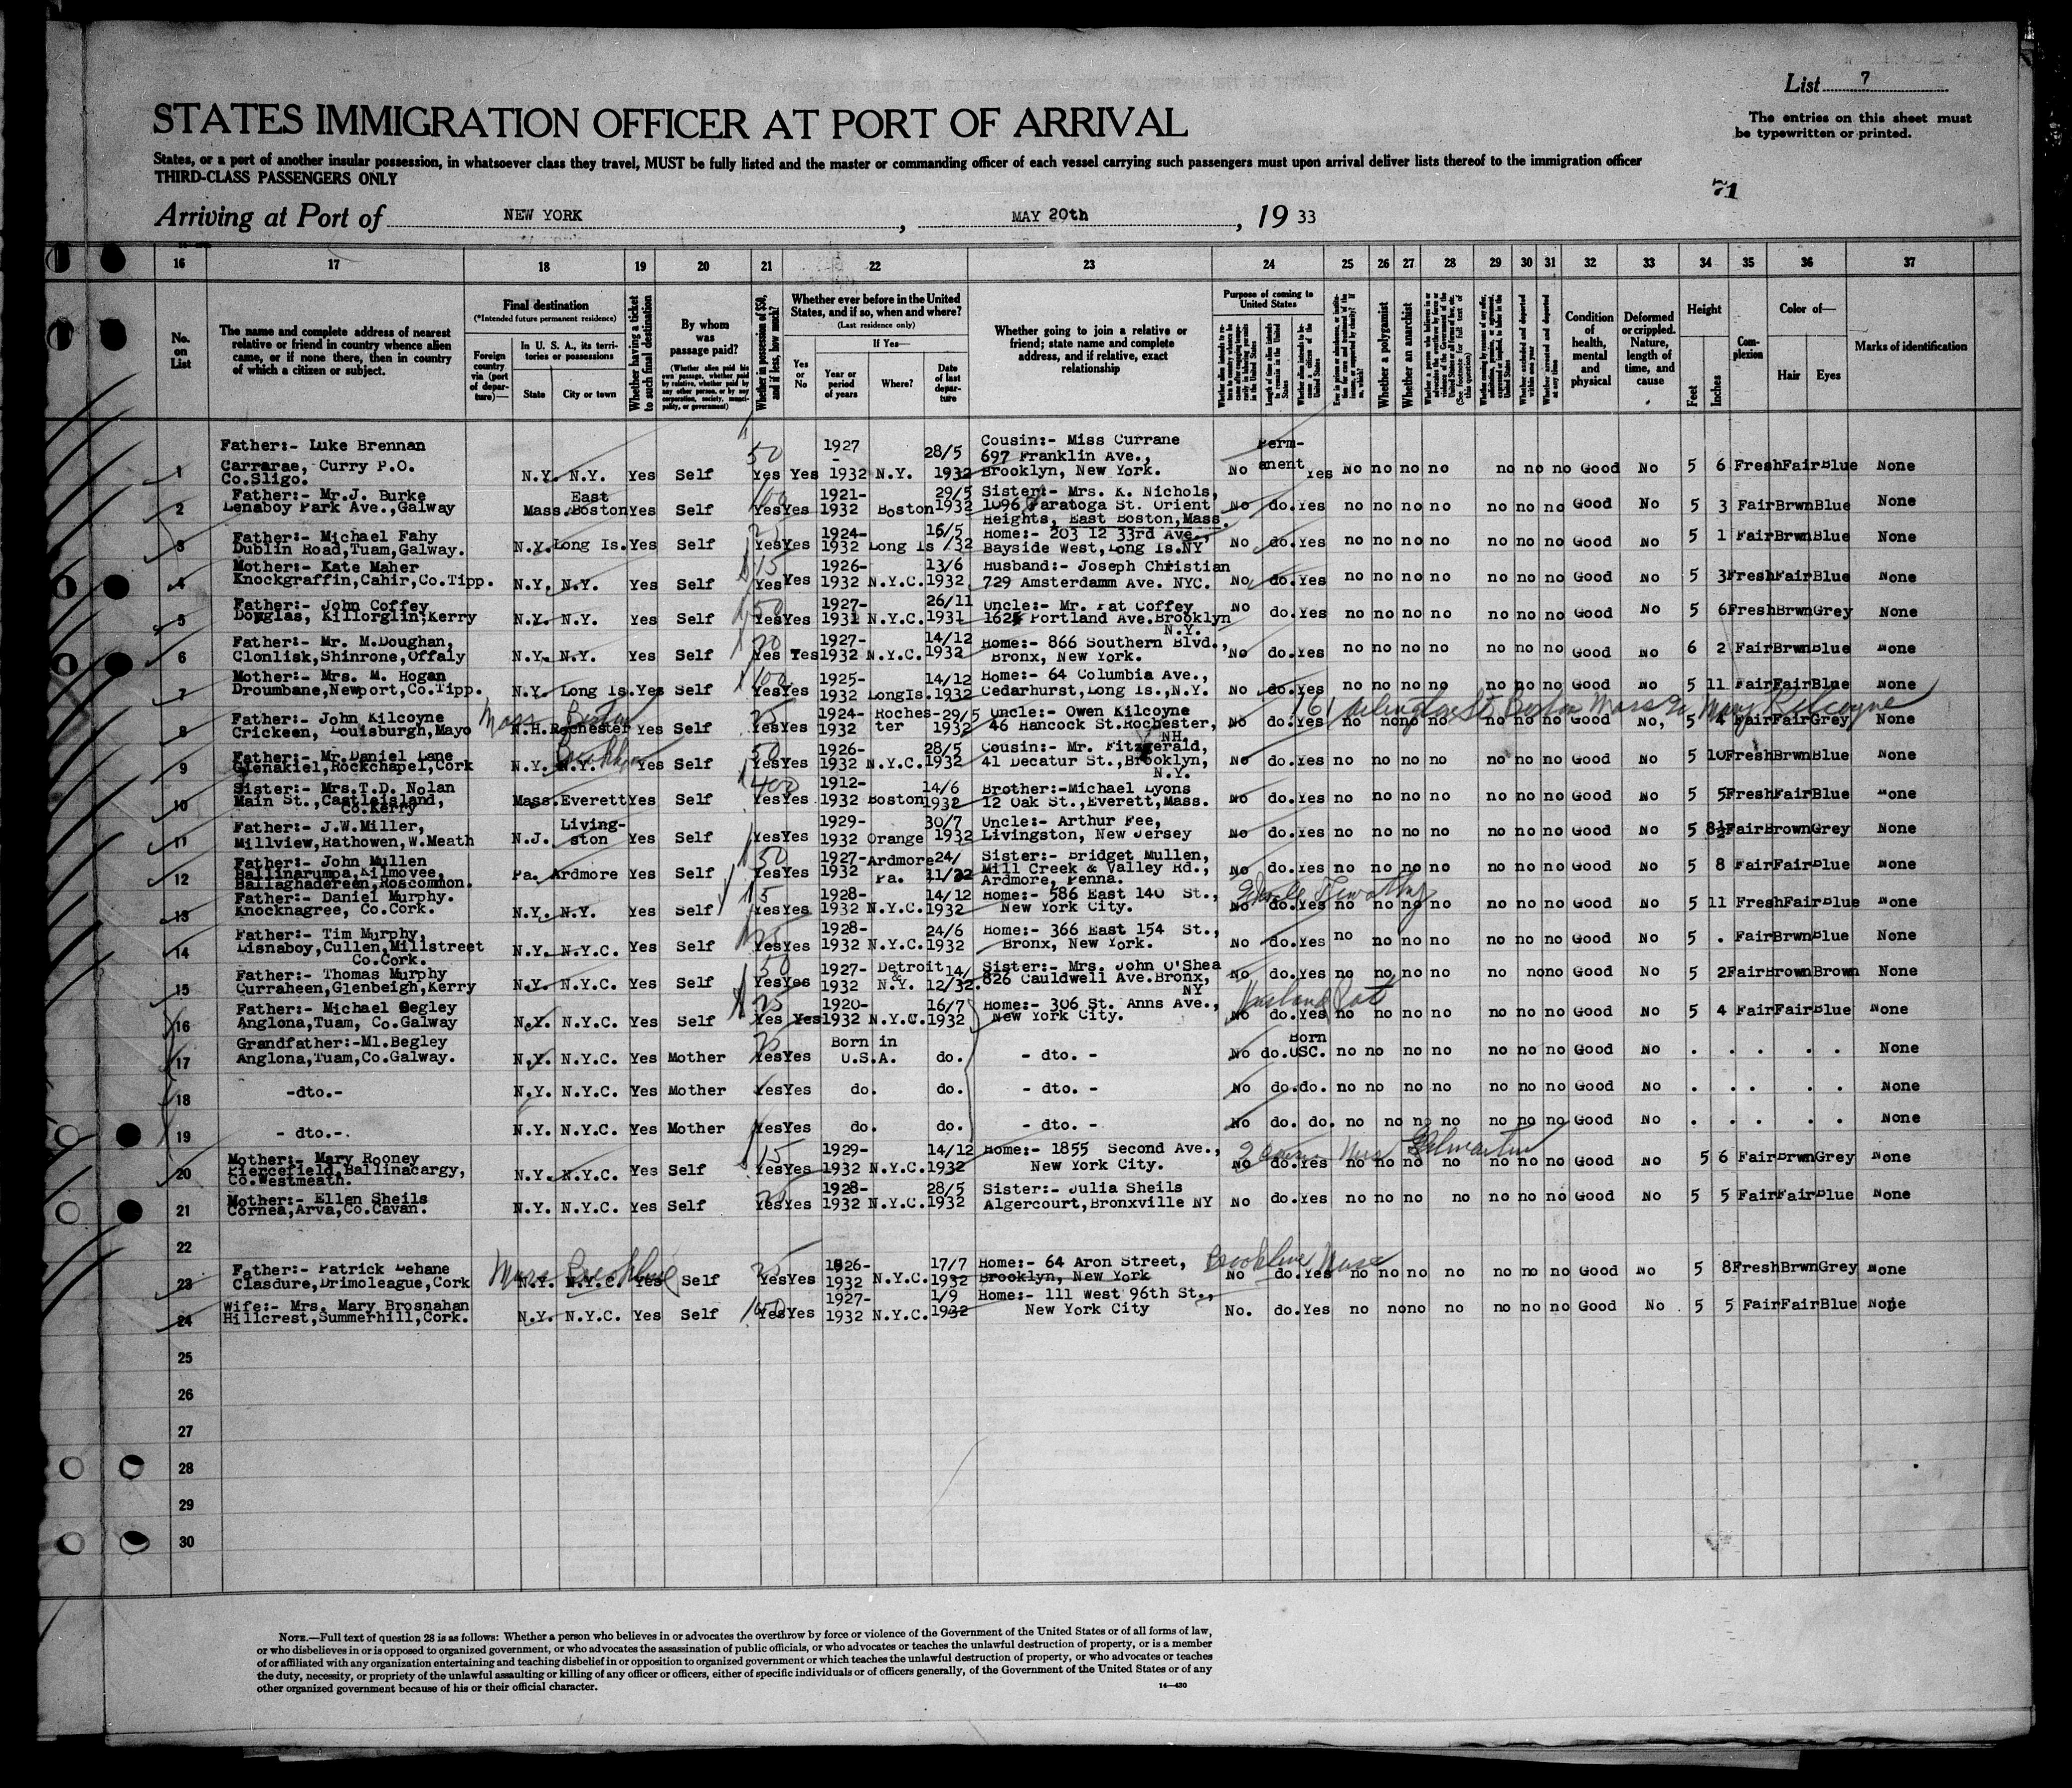 List 7
The entries on this sheet must
be typewritten or printed.
STATES IMMIGRATION OFFICER AT PORT OF ARRIVAL
States, or a port of another insular possession, in whatsoever class they travel, MUST be fully listed and the master or commanding officer of each vessel carrying such passengers must upon arrival deliver lists thereof to the immigration officer
THIRD-CLASS PASSENGERS ONLY
71
Arriving at Port of NEW YORK, MAY 20th, 19 33
16 17 18 19 20 21 22 23 24 25 26 27 28 29 30 31 32 33 34 35 36 37
No. on List
The name and complete address of nearest relative or friend in country whence alien came, or if none there, then in country of which a citizen or subject.
Final destination
(*Intended future permanent residence)
Foreign country via (port of departure)—
In U. S. A., its territories or possessions
State City or town
Whether having a ticket to such final destination
By whom was passage paid?
(Whether alien paid his own passage, whether paid by relative, whether paid by any other person, or by any corporation, society, municipality, or government)
Whether in possession of $50, and if less, how much?
Whether ever before in the United States, and if so, when and where?
(Last residence only)
Yes or No
If Yes—
Year or period of years Where? Date of last departure
Whether going to join a relative or friend; state name and complete address, and if relative, exact relationship
Purpose of coming to United States
Whether a polygamist
Whether an anarchist
Condition of health, mental and physical
Deformed or crippled. Nature, length of time, and cause
Height
Feet Inches
Complexion
Color of—
Hair Eyes
Marks of identification
1 Father:- Luke Brennan Carrarae, Curry P.O. Co.Sligo. N.Y. N.Y. Yes Self 50 Yes Yes 1927 - 1932 N.Y. 28/5 1932 Cousin:- Miss Currane 697 Franklin Ave., Brooklyn, New York. No Permanent Yes No no no no no no no Good No 5 6 Fresh Fair Blue None
2 Father:- Mr.J. Burke Lenaboy Park Ave.,Galway Mass. East Boston Yes Self 100 Yes Yes 1921- 1932 Boston 29/5 1932 Sister:- Mrs. K. Nichols, 1096 Saratoga St. Orient Heights, East Boston,Mass. No do. Yes no no no no no no no Good No 5 3 Fair Brwn Blue None
3 Father:- Michael Fahy Dublin Road,Tuam,Galway. N.Y. Long Is. Yes Self 25 Yes Yes 1924- 1932 Long Is 16/5 /32 Home:- 203 12 33rd Ave., Bayside West,Long Is.NY No do. Yes no no no no no no no Good No 5 1 Fair Brwn Blue None
4 Mother:- Kate Maher Knockgraffin,Cahir,Co.Tipp. N.Y. N.Y. Yes Self 15 Yes Yes 1926- 1932 N.Y.C. 13/6 1932 Husband:- Joseph Christian 729 Amsterdamm Ave. NYC. No do. Yes no no no no no no no Good No 5 3 Fresh Fair Blue None
5 Father:- John Coffey Douglas, Killorglin,Kerry N.Y. N.Y. Yes Self 50 Yes Yes 1927- 1931 N.Y.C. 26/11 1931 Uncle:- Mr. Pat Coffey Portland Ave.Brooklyn N.Y. No do. Yes no no no no no no no Good No 5 6 Fresh Brwn Grey None
6 Father:- Mr. M.Doughan, Clonlisk,Shinrone,Offaly N.Y. N.Y. Yes Self 20 Yes Yes 1927- 1932 N.Y.C. 14/12 1932 Home:- 866 Southern Blvd., Bronx, New York. No do. Yes no no no no no no no Good No 6 2 Fair Brwn Blue None
7 Mother:- Mrs. M. Hogan Droumbane,Newport,Co.Tipp. N.Y. Long Is. Yes Self 100 Yes Yes 1925- 1932 LongIs. 14/12 1932 Home:- 64 Columbia Ave., Cedarhurst,Long Is.,N.Y. No do. Yes no no no no no no no Good No 5 11 Fair Fair Blue None
Mass Boston 161 Arlington St Boston Mass Mary Kilcoyne
8 Father:- John Kilcoyne Crickeen, Louisburgh,Mayo N.H. Rochester Yes Self 25 Yes Yes 1924- 1932 Rochester 29/5 1932 Uncle:- Owen Kilcoyne 46 Hancock St.Rochester, NH. No do. Yes no no no no no no no Good No, 5 4 Fair Fair Grey None
Brooklyn
9 Father:- Mr.Daniel Lane Glenakiel,Rockchapel,Cork N.Y. N.Y. Yes Self 50 Yes Yes 1926- 1932 N.Y.C. 28/5 1932 Cousin:- Mr. Fitzgerald, 41 Decatur St.,Brooklyn, N.Y. No do. Yes no no no no no no no Good No 5 10 Fresh Brwn Blue None
10 Sister:- Mrs.T.D. Nolan Main St.,Castleisland, Co.Kerry Mass. Everett Yes Self 400 Yes Yes 1912- 1932 Boston 14/6 1932 Brother:-Michael Lyons 12 Oak St.,Everett,Mass. No do. Yes no no no no no no no Good No 5 5 Fresh Fair Blue None
11 Father:- J.W.Miller, Millview,Rathowen,W.Meath N.J. Livingston Yes Self Yes Yes 1929- 1932 Orange 30/7 1932 Uncle:- Arthur Fee, Livingston, New Jersey No do. Yes no no no no no no no Good No 5 8½ Fair Brown Grey None
12 Father:- John Mullen Ballinarumpa,Kilmovee, Ballaghadereen,Roscommon. Pa. Ardmore Yes Self 50 Yes Yes 1927- 1932 Ardmore Pa. 24/ 11/32 Sister:- Bridget Mullen, Mill Creek & Valley Rd., Ardmore, Penna. No do. Yes no no no no no no no Good No 5 8 Fair Fair Blue None
13 Father:- Daniel Murphy. Knocknagree, Co.Cork. N.Y. N.Y. Yes Self 15 Yes Yes 1928- 1932 N.Y.C. 14/12 1932 Home:- 586 East 140 St., New York City. No do. Yes no no no no no no no Good No 5 11 Fresh Fair Blue None
14 Father:- Tim Murphy, Lisnaboy,Cullen,Millstreet Co.Cork. N.Y. N.Y.C. Yes Self Yes Yes 1928- 1932 N.Y.C. 24/6 1932 Home:- 366 East 154 St., Bronx, New York. No do. Yes no no no no no no no Good No 5 . Fair Brwn Blue None
15 Father:- Thomas Murphy Curraheen,Glenbeigh,Kerry N.Y. N.Y.C. Yes Self 50 Yes Yes 1927- 1932 Detroit & N.Y. 14/ 12/32. Sister:- Mrs. John O'Shea 826 Cauldwell Ave.Bronx, NY No do. Yes no no no no no no no Good No 5 2 Fair Brown Brown None
Husband Pat
16 Father:- Michael Begley Anglona,Tuam, Co.Galway N.Y. N.Y.C. Yes Self 25 Yes Yes 1920- 1932 N.Y.C. 16/7 1932 Home:- 306 St. Anns Ave., New York City. No do. Yes no no no no no no no Good No 5 4 Fair Fair Blue None
17 Grandfather:-Ml.Begley Anglona,Tuam,Co.Galway. N.Y. N.Y.C. Yes Mother Yes Yes Born in U.S.A. do. - dto. - No do. Born USC. no no no no no no no Good No . . . . . None
18 -dto.- N.Y. N.Y.C. Yes Mother Yes Yes do. do. - dto. - No do. do. no no no no no no no Good No . . . . . None
19 - dto.-. N.Y. N.Y.C. Yes Mother Yes Yes do. do. - dto. - No do. do. no no no no no no no Good No . . . . . None
20 Mother:- Mary Rooney Piercefield,Ballinacargy, Co.Westmeath. N.Y. N.Y.C. Yes Self 15 Yes Yes 1929- 1932 N.Y.C. 14/12 1932 Home:- 1855 Second Ave., New York City. No do. Yes no no no no no no no Good No 5 6 Fair Brwn Grey None
21 Mother:- Ellen Sheils Cornea,Arva,Co.Cavan. N.Y. N.Y.C. Yes Self 25 Yes Yes 1928- 1932 N.Y.C. 28/5 1932 Sister:- Julia Sheils Algercourt,Bronxville NY No do. Yes no no no no no no no Good No 5 5 Fair Fair Blue None
22
Mass Brookline Brookline Mass
23 Father:- Patrick Dehane Clasdure,Drimoleague,Cork N.Y. N.Y.C. Yes Self 25 Yes Yes 1926- 1932 N.Y.C. 17/7 1932 Home:- 64 Aron Street, Brooklyn, New York No do. Yes no no no no no no no Good No 5 8 Fresh Brwn Grey None
24 Wife:- Mrs. Mary Brosnahan Hillcrest,Summerhill,Cork. N.Y. N.Y.C. Yes Self Yes Yes 1927- 1932 N.Y.C. 1/9 1932 Home:- 111 West 96th St., New York City No. do. Yes no no no no no no no Good No 5 5 Fair Fair Blue None
25
26
27
28
29
30
NOTE.—Full text of question 28 is as follows: Whether a person who believes in or advocates the overthrow by force or violence of the Government of the United States or of all forms of law,
or who disbelieves in or is opposed to organized government, or who advocates the assassination of public officials, or who advocates or teaches the unlawful destruction of property, or is a member
of or affiliated with any organization entertaining and teaching disbelief in or opposition to organized government or which teaches the unlawful destruction of property, or who advocates or teaches
the duty, necessity, or propriety of the unlawful assaulting or killing of any officer or officers, either of specific individuals or of officers generally, of the Government of the United States or of any
other organized government because of his or their official character.
14—430